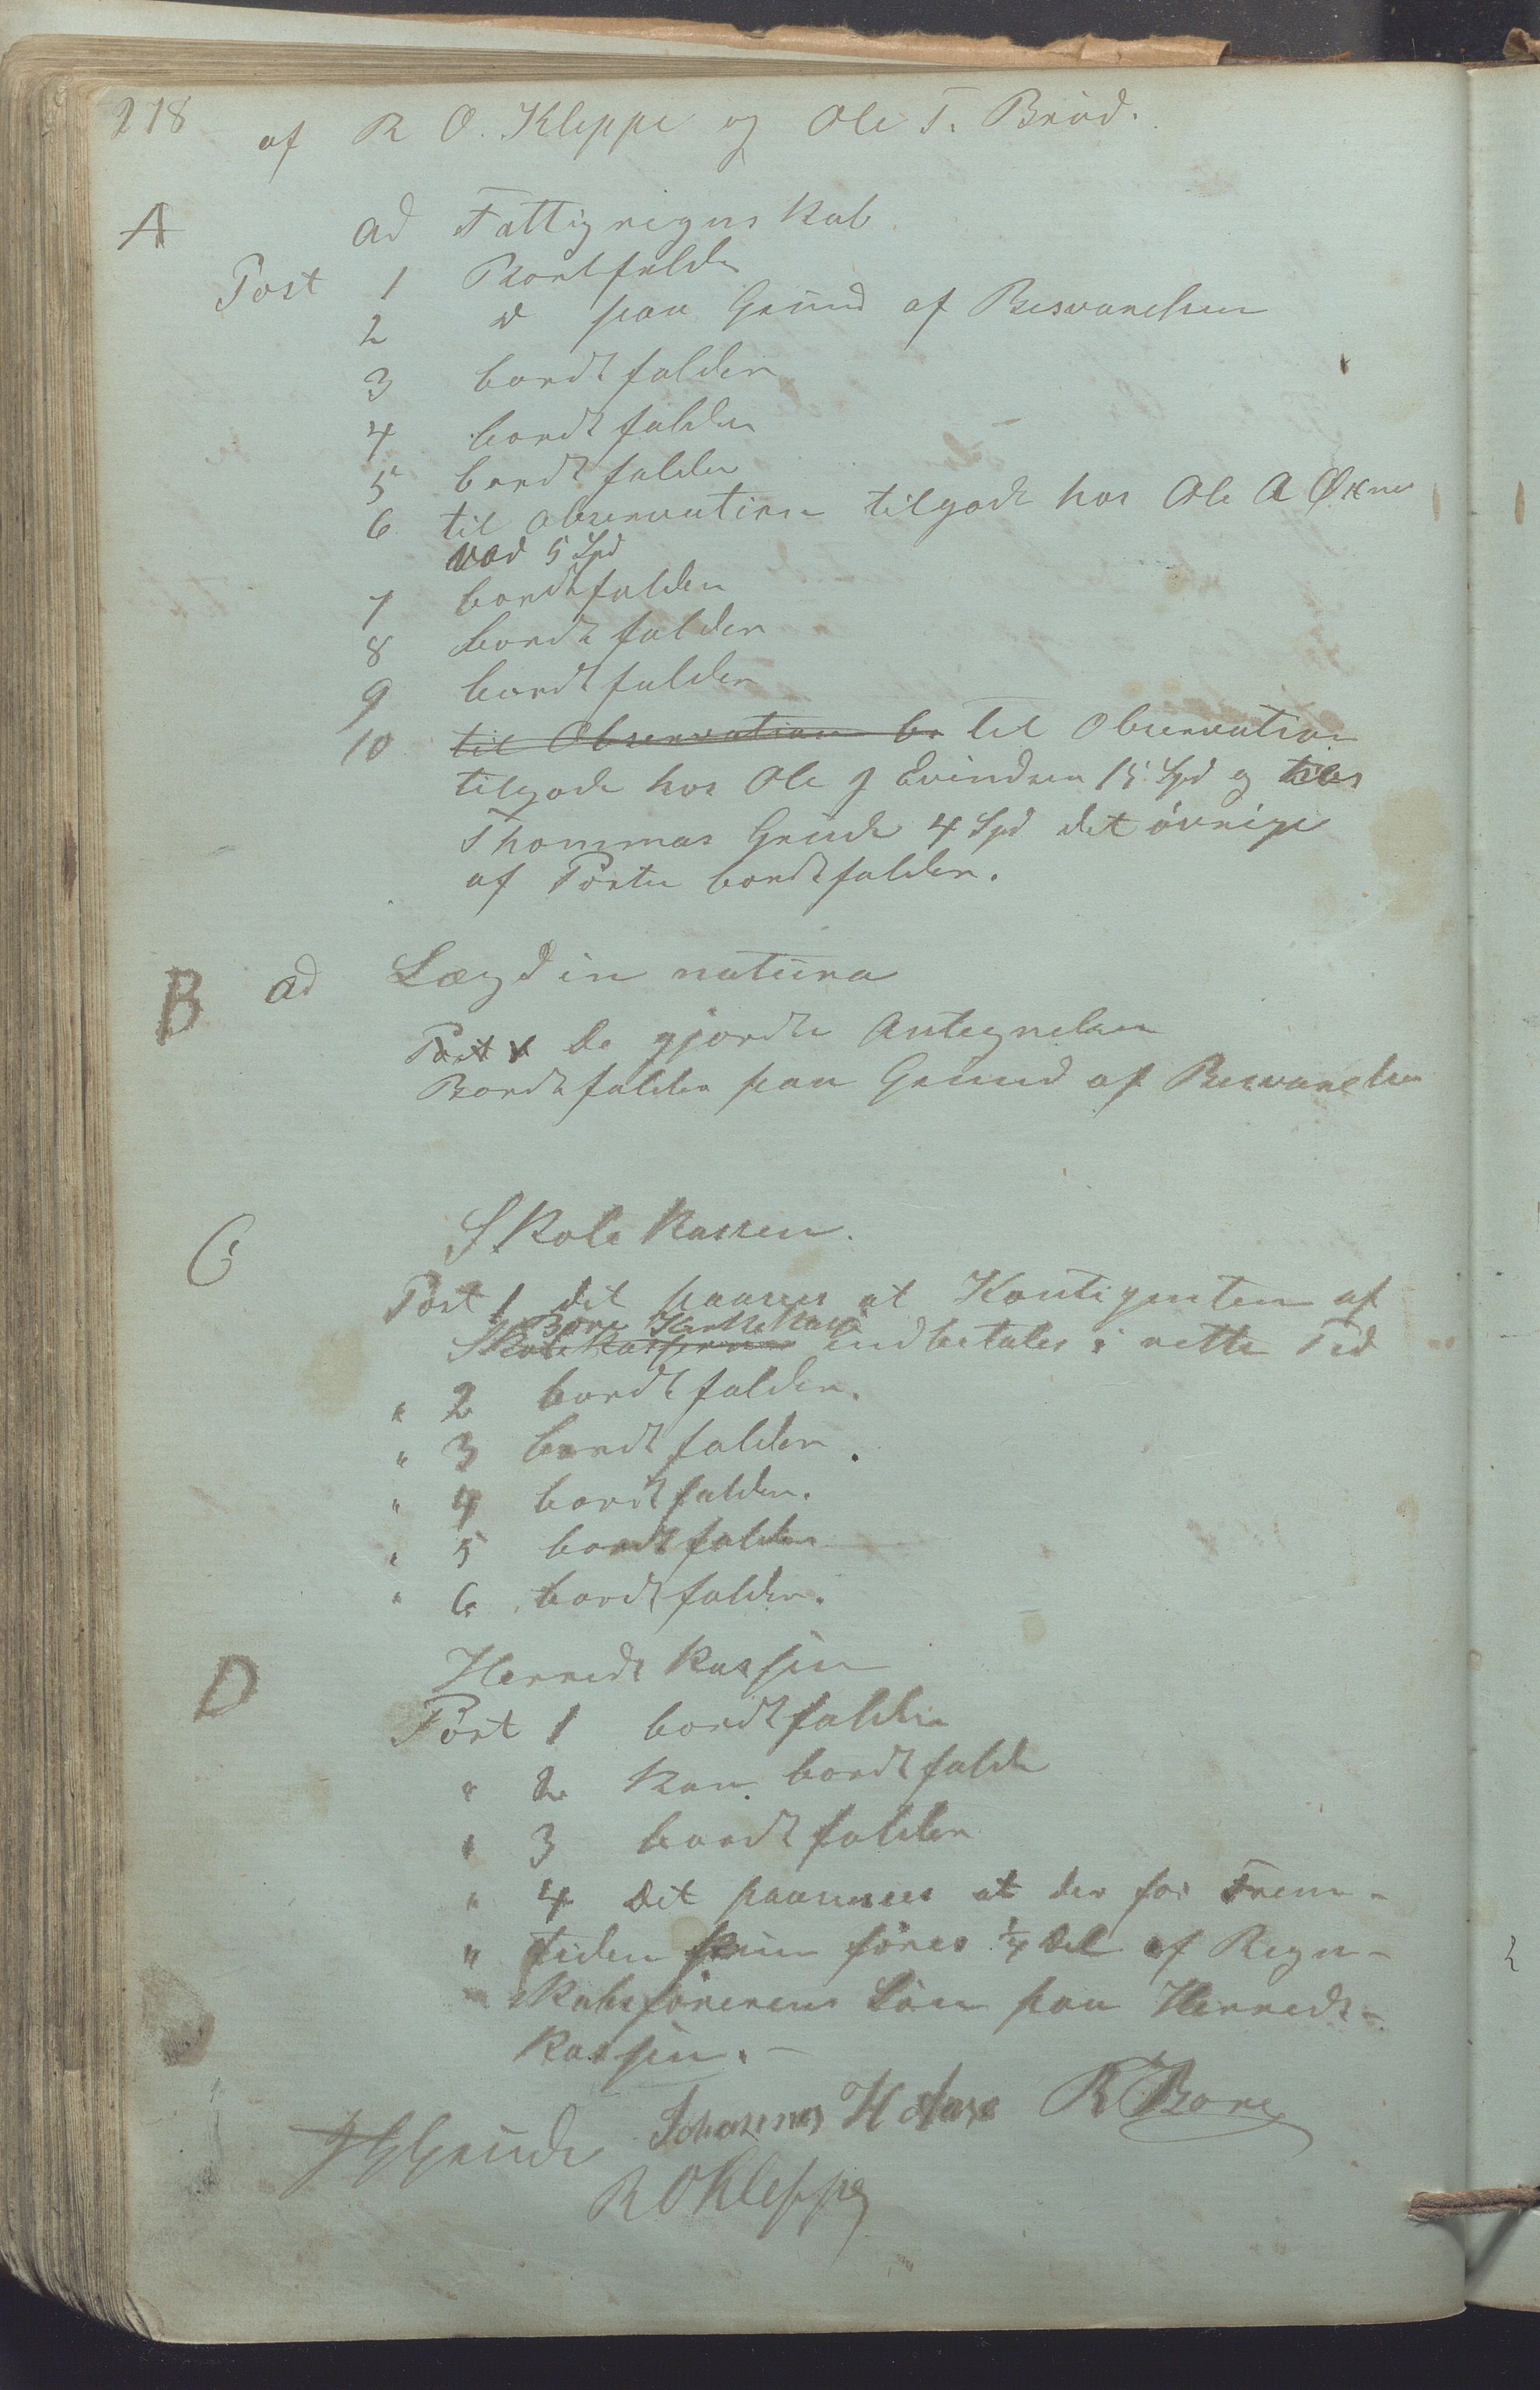 278
af R O. Kleppe og Ole T. Bröd.
A ad Fattigregnskab
Post 1 Bortfalder
2 d paa Grund af Besvarelsen
3 bordtfalder
4 bordtfalder
5 bordtfalder
6 til Observation tilgode hos Ole A
vod 5 Spd
7 bordtfalder
8 bordtfalder
9 bordtfalder
10 til Observation be til Observation
tilgode hos Ole J Evindsen 15 Spd og hos
Thommas Grude 4 Spd det övrige
af Posten bordtfalder.
B ad Lægd in natura
Post 1 De gjordte Antegnelser
Bordtfalder paa Grund af Besvarelsen
C Skolekassen.
Post 1 det paasees at Kontigenten af
Bore Kirkekasse
Skolekassen indbetales i rette Tid
" 2 bordtfalder.
" 3 bordtfalder.
" 4 bordtfalder.
" 5 bordtfalder
" 6 bordtfalder.
D Herredskassen
Post 1 bordtfalder
" 2 Kan bordtfalde
" 3 bordtfalder
" 4 Det paasees at der for Frem-
" tiden kun föres 1/4 Del af Regn-
" skabsförerens Lön paa Herreds-
kassen. -
Grude Johannes H Aase R Bore
R O Kleppe